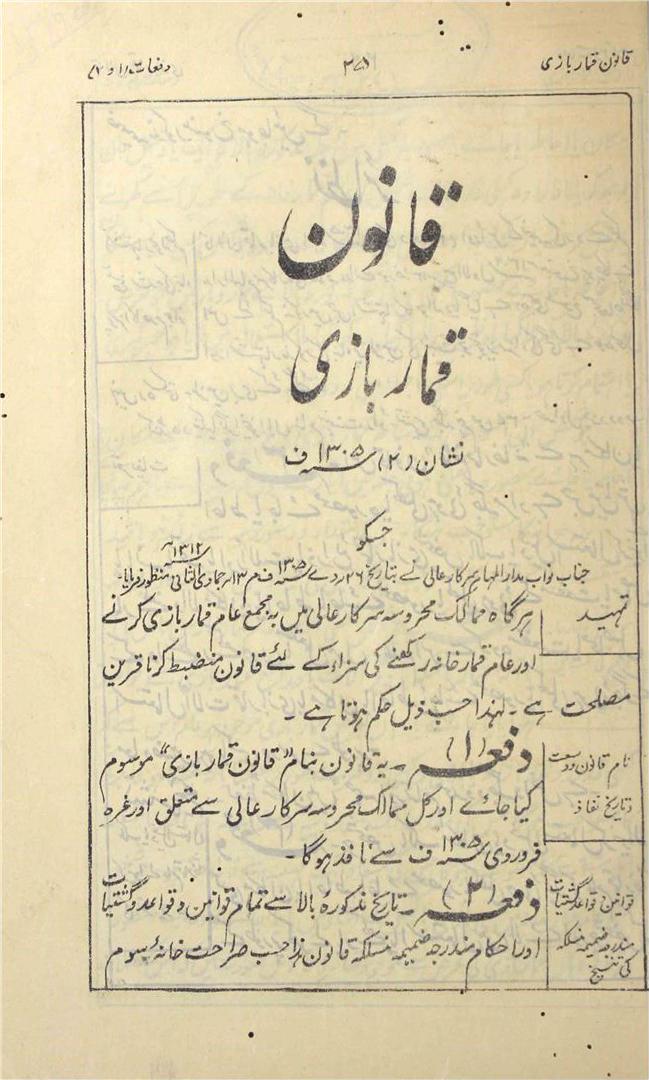 قانون قمار بازی
دفعات ۱ و ۲
قانون
قمار بازی
نشان (۲) ۱۳۰۵سنہ ف
جسکو
جناب نواب مدار المہام سرکار عالی نے بتاریخ ۲۶ دے ۱۳۰۵سنہ ف م ۱۳ جمادی الثانی ۱۳۱۳سنہ منظور فرمایا۔
تمہید
ہرگاہ ممالک محروسہ سرکار عالی میں بہ مجمع عام قمار بازی کرنے
اور عام قمار خانہ رکھنے کی سزا کے لئے قانون منضبط کرنا قرین
مصلحت ہے۔ لہذا حسب ذیل حکم ہوتا ہے۔
نام قانون وسعت
و تاریخ نفاذ
دفعہ (۱) ۔ یہ قانون بنام "قانون قمار بازی" موسوم
کیا جائے اور کل ممالک محروسہ سرکار عالی سے متعلق اور غرہ
فروردی ۱۳۰۵سنہ ف سے نافذ ہوگا۔
قوانین و قواعد و گشتیات
مندرجہ ضمیمہ منسلکہ
کی تنسیخ
دفعہ (۲) ۔ تاریخ مذکورۂ بالا سے تمام قوانین و قواعد و گشتیات
اور احکام مندرجہ ضمیمہ منسلکہ قانون ہذا حسب صراحت خانۂ سوم